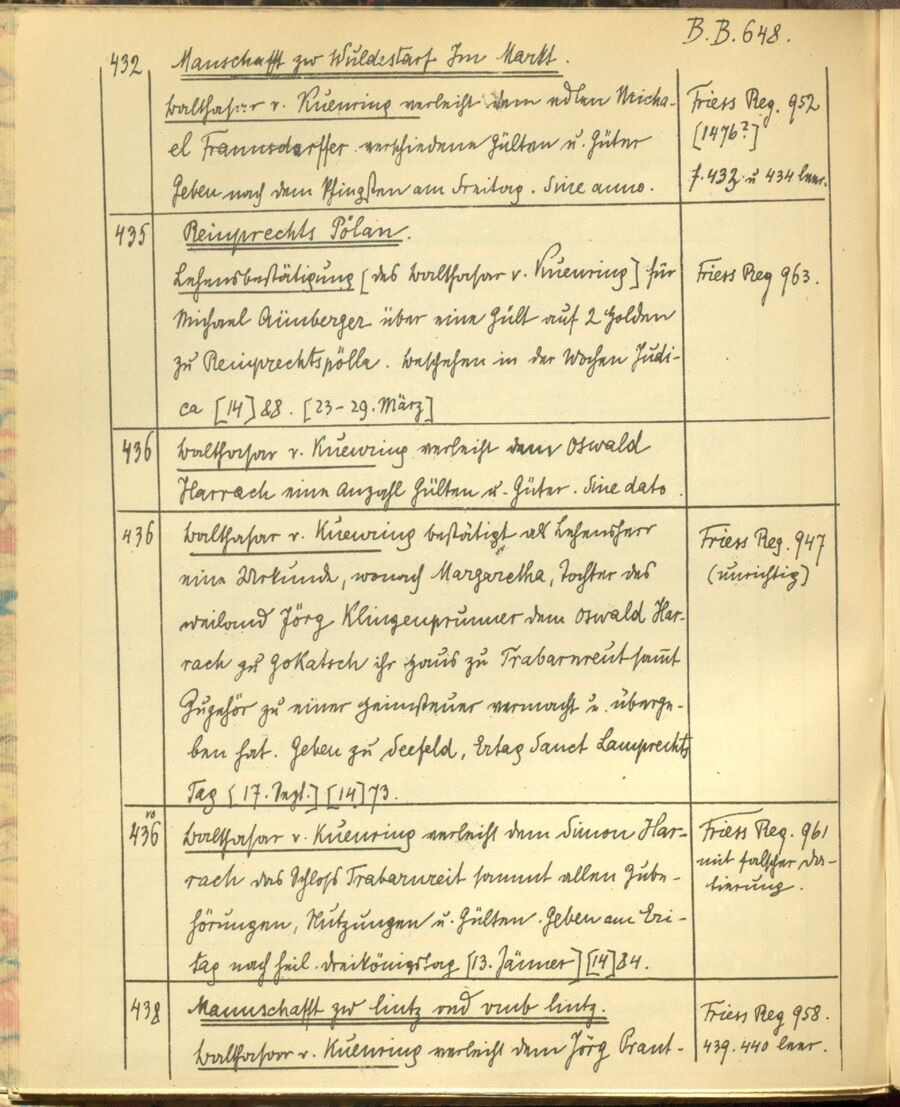 B.B. 648.
432 Manschafft zw Wuldestarf Im Markt.
Walthasar v. Kuenring verleiht dem edlen Micha-
el Frannsdorffer verschiedene Gülten u. Güter
Geben nach dem Pfingsten am Freitag. Sine anno.
Friess Reg. 952
[1476?]
f. 432 u 434 leer.
435 Reinprechts Pölan.
Lehensbestätigung [des Walthasar v. Kuenring] für
Michael Aümberger über eine Gült auf 2 Holden
zu Reinprechtspölla. Beschehen in der Wochen Judi-
ca [14]88. [23-29. März]
Friess Reg 963.
436 Walthasar v. Kuenring verleiht dem Oswald
Harrach eine Anzahl Gülten u. Güter. Sine dato
436 Walthasar v. Kuenring bestätigt als Lehensherr
eine Urkunde, wonach Margaretha, Tochter des
weiland Jörg Klingenprunner dem Oswald Har-
rach zu Gokatsch ihr Haus zu Trabarnreut samt
Zugehör zu einer Heimsteuer vermacht u. überge-
ben hat. Geben zu Seefeld, Ertag Sanct Lamprechts
Tag [17. Sept.] [14]73.
Friess Reg. 947
(unrichtig)
436 vo Walthasar v. Kuenring verleiht dem Simon Har-
rach das Schloss Trabarnreit sammt allen Zube-
hörungen, Nutzungen u. Gülten. Geben am Eri-
tag nach heil. Dreikönigstag [13. Jänner] [14]84.
Friess Reg. 961
mit falscher Da-
tierung.
438 Mannschafft zw lintz vnd vmb lintz.
Walthasar v. Kuenring verleiht dem Jörg Prant-
Friess Reg 958.
439. 440 leer.